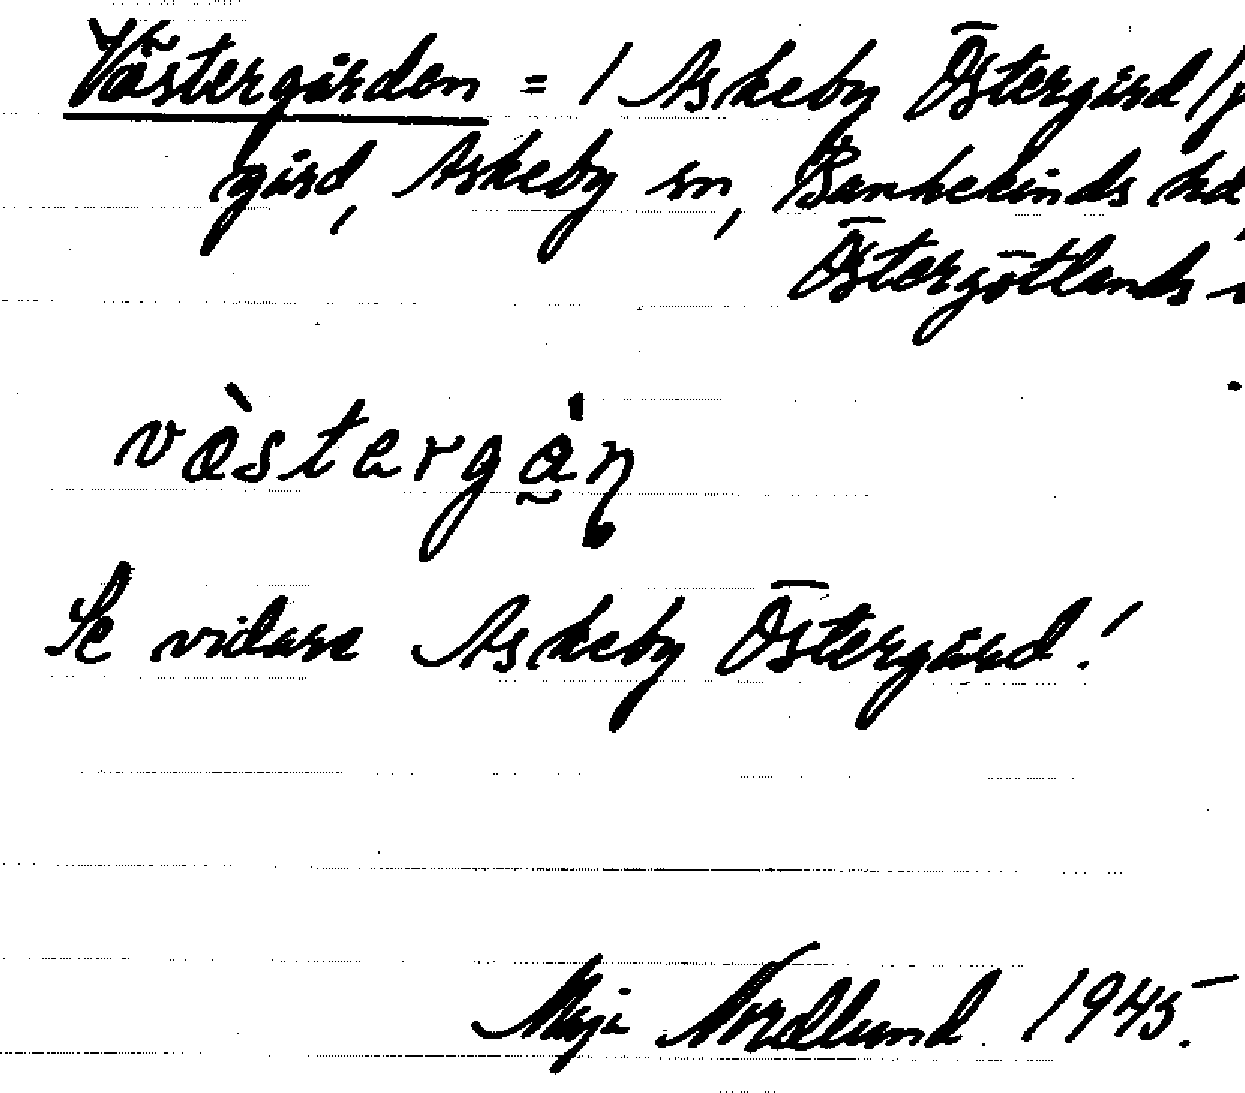 Västergården = 1 Askeby Östergård/
gård, Askeby sn, Bankekinds hd
Östergötlands
västergån
Se vidare Askeby Östergård!
Maja Nordlund 1945.